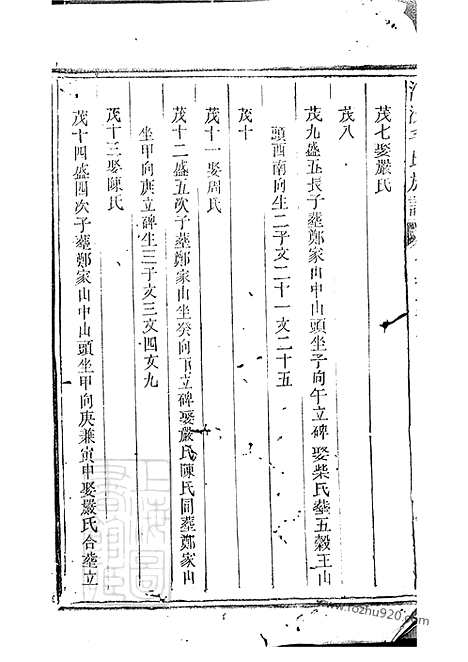 茂七娶嚴氏
茂八
茂九盛五長子葬鄭家山中山頭坐子向午立碑娶柴氏葬五榖王山
頭酉南向生二子文二十一文二十五
茂十
茂十一娶周氏
茂十二盛五次子葬鄭家山坐癸向丁立碑娶嚴氏陳氏同葬鄭家山
坐甲向庚立碑生三子文三文四文九
茂十三娶陳氏
茂十四盛四次子葬鄭家山中山頭坐甲向庚兼寅申娶嚴氏合葬立
www.rozhu920.com